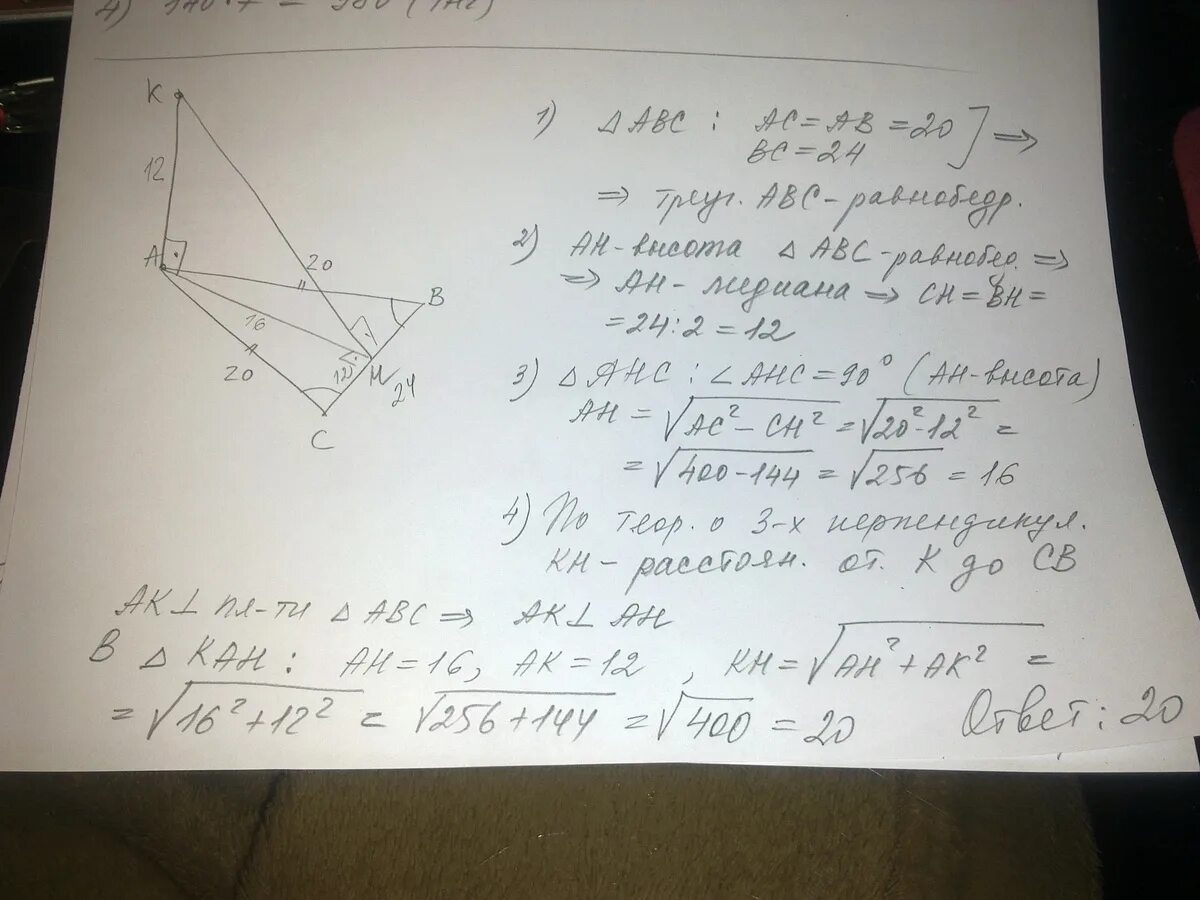 4) 140·7 = 980 (
K
12
A
20
B
16
12
H
24
20
C
1) △ABC : AC = AB = 20 ] ⟹
BC = 24
⟹ треуг. ABC – равнобедр.
2) AH - высота △ ABC - равнобед. ⟹
⟹ AH - медиана ⟹ CH = BH =
= 24 : 2 = 12
3) △AHC : ∠AHC = 90° (AH - высота)
AH = √(AC² – CH²) = √(20² - 12²) =
= √(400 - 144) = √256 = 16
4) По теор. о 3-х перпендикул.
KH – расстоян. от. K до CB
AK ⊥ пл-ти △ABC ⟹ AK ⊥ AH
В △ KAH : AH = 16, AK = 12 , KH = √(AH² + AK²) =
= √(16² + 12²) = √(256 + 144) = √400 = 20 Ответ : 20